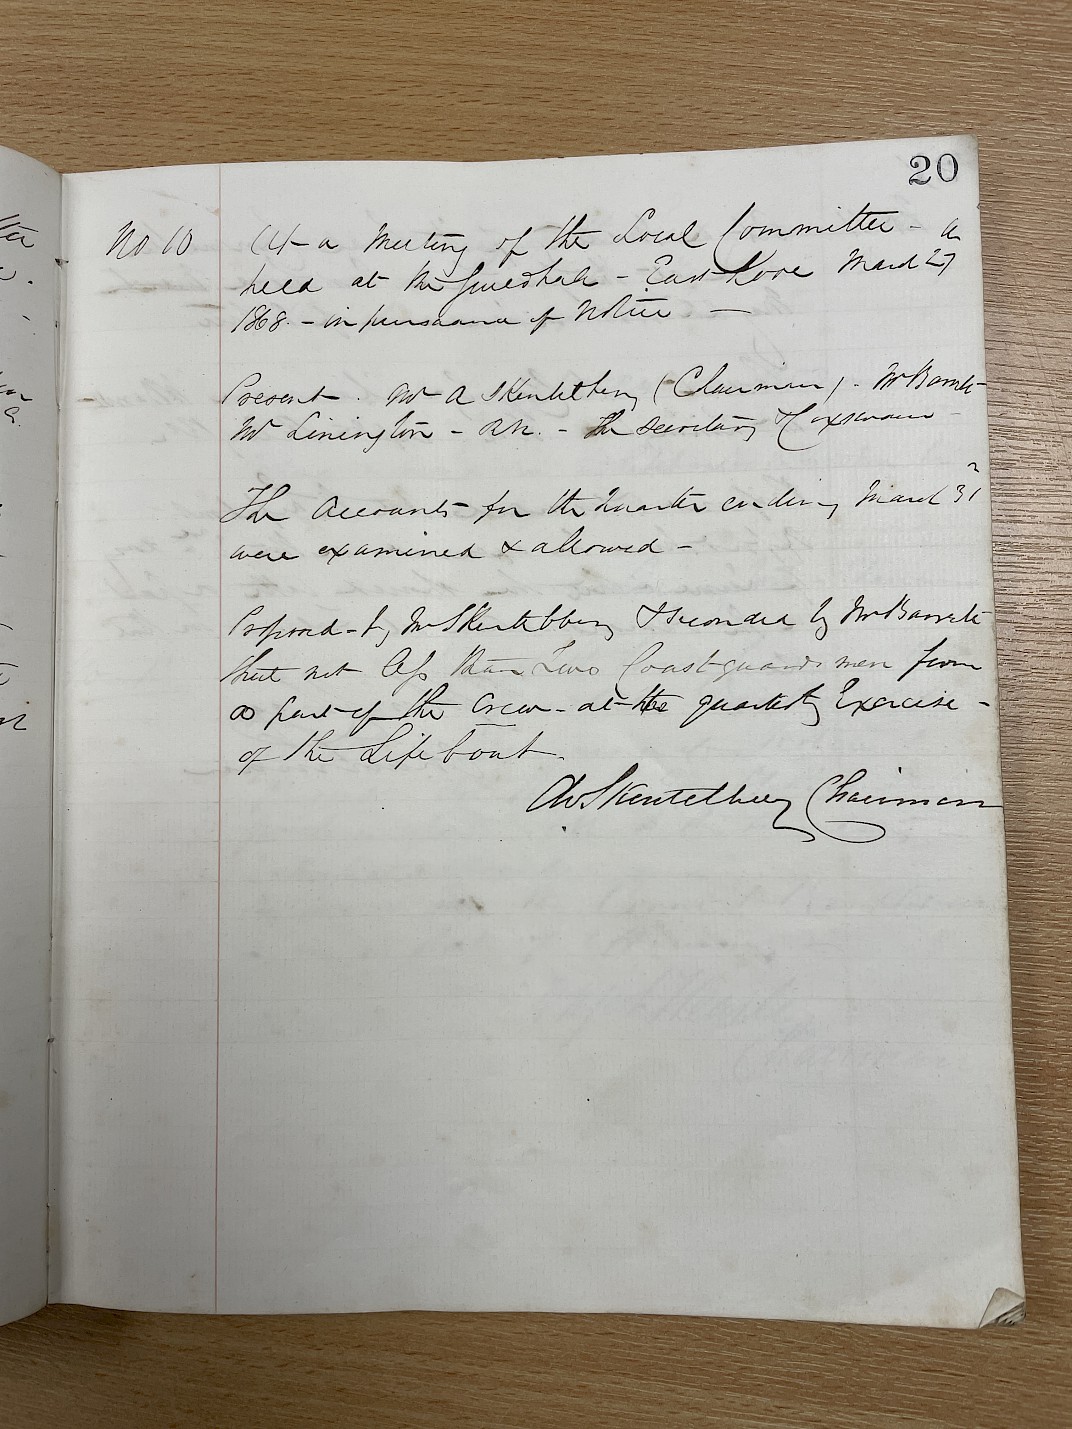 20
No 10 At a Meeting of the Local Committee - as
held at the Guildhall - East Looe March 27
1868. - in pursuance of Notice -
Present. Mr A Skentelbery (Chairman). Mr Barrett
Mr Linington - RN. - The Secretary & Coxswain -
The Accounts for the Quarter ending March 31
were examined & allowed -
Proposed - by Mr Skentelbery & seconded by Mr Barrett
that not less than Two Coastguards men form
as part of the Crew - at the quarterly Exercise -
of the Lifeboat.
Skentelbery Chairman